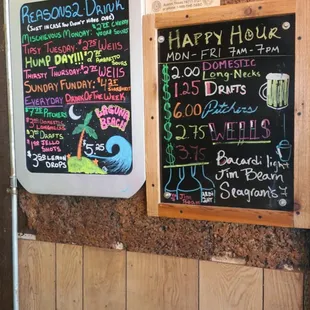 Reasons 2 Drink
(Just in case you don't have one)
Mischievous Monday
Tipsy Tuesday $2.75 Wells
Hump Day!!!
Thirsty Thursday $2.75 Wells
Sunday Funday
Everyday Drink Of The Week
Pitchers
Domestic
Drafts
Jello
Shots
Lemon
Drops
Laguna
Beach
5.25
Happy Hour
Mon-Fri 7am-7pm
$2.00 Domestic
Long-Necks
$1.25 Drafts
$6.00 Pitchers
$2.75 Wells
$3.75
Bacardi light
Jim Beam
Seagram's 7